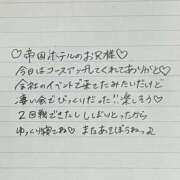 ♡帝国ホテルのお兄様♡
今日はコースアップしてくれてありがと♡
会社のイベントで来てたみたいだけど
凄い会でびっくりだった!!楽しそう♡
2回戦できたし しぼりとったから
ゆっくり寝てね♡ またあそぼうねっ